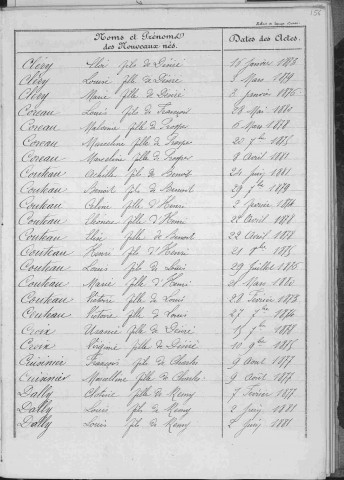 Noms et Prénoms
des Nouveaux nés.
Dates des Actes.
Cléry fils de Désiré 18 Janvier 1878
Cléry Louise fille de Désiré Mars 1879
Cléry Marie fille de Désiré 3 Janvier 1875
Coreau Louis fils de François 28 Mai 1880
Coreau fille de Prosper 6 Mars 1877
Coreau Marceline fille de Prosper 20 7bre 1875
Coreau Marceline fille de Prosper 8 Avril 1881
Couteau Achille fils de Benoit 24 Juin 1881
Couteau Benoit fils de Benoit 29 7bre 1879
Couteau Céline fille d'Henri 2 Février 1874
Couteau fille d'Henri 22 Avril 1881
Couteau fille de Benoit 22 Avril 1878
Couteau Henri fils d'Henri 21 9bre 1875
Couteau Louis fils de Louis 29 Juillet 1875
Couteau Marie fille d'Henri Mars 1880
Couteau Victoire fille de Louis 28 Février 1873
Couteau Victoire fille de Louis 27 7bre 1874
Croix fille de Désiré 15 1878
Croix fille de Désiré 10 9bre 1875
Cuisinier François fils de Charles 9 Avril 1877
Cuisinier Marcelline fille de Charles 9 Avril 1877
Dally fille de Remy 7 Février 1877
Dally Louis fils de Remy 2 Juin 1881
Dally Louis fils de Remy 2 Juin 1881